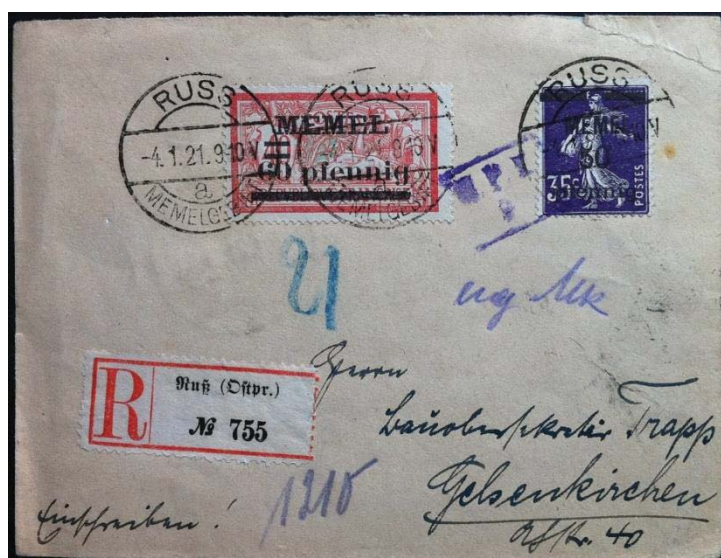 RUSS
-4.1.21.9-10V
a
MEMELGEBIET
RUSS
MEMEL
60 pfennig
RUSS
MEMEL
60
pfennig
35c
POSTES
21
R
Ruß (Ostpr.)
№ 755
Herrn
Bauobersekretär Trapp
Gelsenkirchen
40
Einschreiben!
1210